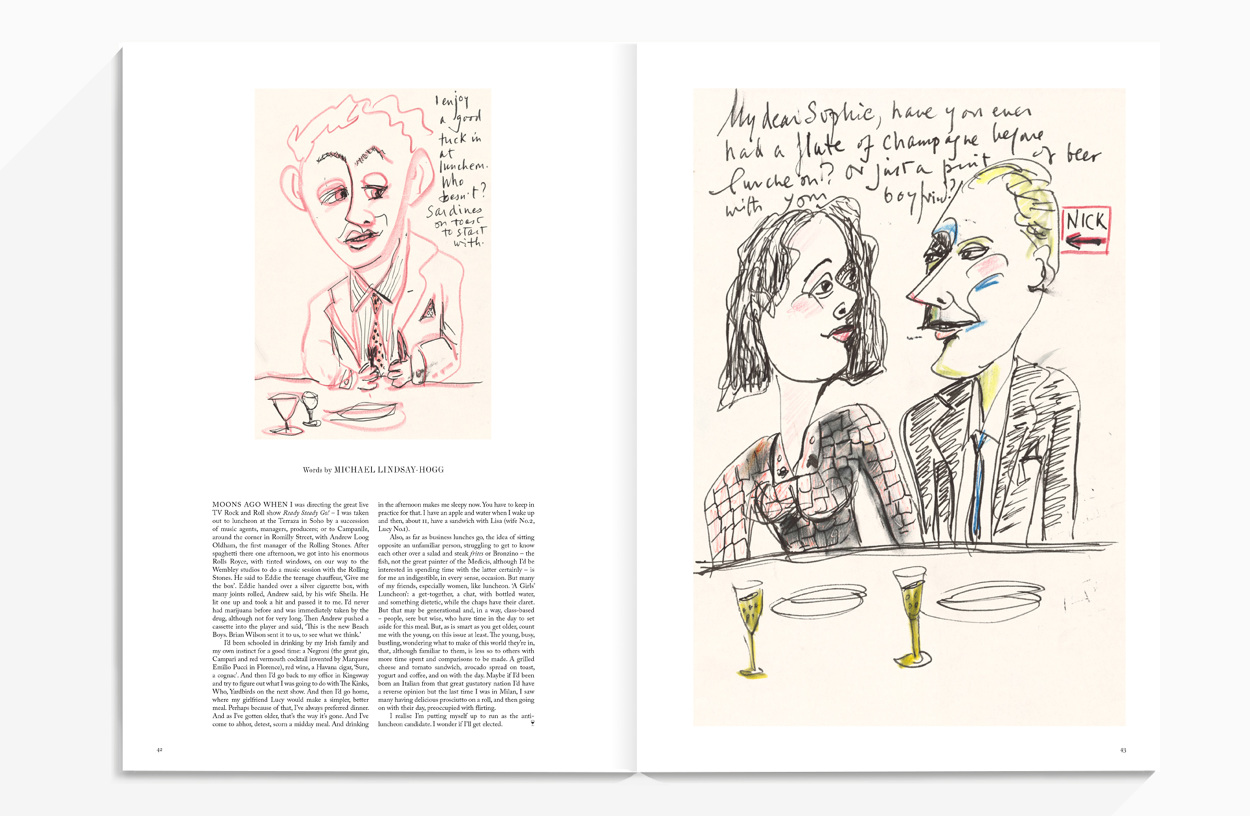 I enjoy
a good
tuck in
at
luncheon.
Who
doesn't?
Sardines
on toast
to start
with.
Words by MICHAEL LINDSAY-HOGG
MOONS AGO WHEN I was directing the great live
TV Rock and Roll show Ready Steady Go! – I was taken
out to luncheon at the Terraza in Soho by a succession
of music agents, managers, producers; or to Campanile,
around the corner in Romilly Street, with Andrew Loog
Oldham, the first manager of the Rolling Stones. After
spaghetti there one afternoon, we got into his enormous
Rolls Royce, with tinted windows, on our way to the
Wembley studios to do a music session with the Rolling
Stones. He said to Eddie the teenage chauffeur, 'Give me
the box'. Eddie handed over a silver cigarette box, with
many joints rolled, Andrew said, by his wife Sheila. He
lit one up and took a hit and passed it to me. I'd never
had marijuana before and was immediately taken by the
drug, although not for very long. Then Andrew pushed a
cassette into the player and said, 'This is the new Beach
Boys. Brian Wilson sent it to us, to see what we think.'
I'd been schooled in drinking by my Irish family and
my own instinct for a good time: a Negroni (the great gin,
Campari and red vermouth cocktail invented by Marquese
Emilio Pucci in Florence), red wine, a Havana cigar, 'Sure,
a cognac'. And then I'd go back to my office in Kingsway
and try to figure out what I was going to do with The Kinks,
Who, Yardbirds on the next show. And then I'd go home,
where my girlfriend Lucy would make a simpler, better
meal. Perhaps because of that, I've always preferred dinner.
And as I've gotten older, that's the way it's gone. And I've
come to abhor, detest, scorn a midday meal. And drinking
in the afternoon makes me sleepy now. You have to keep in
practice for that. I have an apple and water when I wake up
and then, about 11, have a sandwich with Lisa (wife No.2,
Lucy No.1).
Also, as far as business lunches go, the idea of sitting
opposite an unfamiliar person, struggling to get to know
each other over a salad and steak frites or Bronzino – the
fish, not the great painter of the Medicis, although I'd be
interested in spending time with the latter certainly – is
for me an indigestible, in every sense, occasion. But many
of my friends, especially women, like luncheon. 'A Girls'
Luncheon': a get-together, a chat, with bottled water,
and something dietetic, while the chaps have their claret.
But that may be generational and, in a way, class-based
– people, sere but wise, who have time in the day to set
aside for this meal. But, as is smart as you get older, count
me with the young, on this issue at least. The young, busy,
bustling, wondering what to make of this world they're in,
that, although familiar to them, is less so to others with
more time spent and comparisons to be made. A grilled
cheese and tomato sandwich, avocado spread on toast,
yogurt and coffee, and on with the day. Maybe if I'd been
born an Italian from that great gustatory nation I'd have
a reverse opinion but the last time I was in Milan, I saw
many having delicious prosciutto on a roll, and then going
on with their day, preoccupied with flirting.
I realise I'm putting myself up to run as the anti-
luncheon candidate. I wonder if I'll get elected.
42
My dear Sophie, have you ever
had a flute of champagne before
luncheon? or just a pint of beer
with your boyfriend?
NICK
43